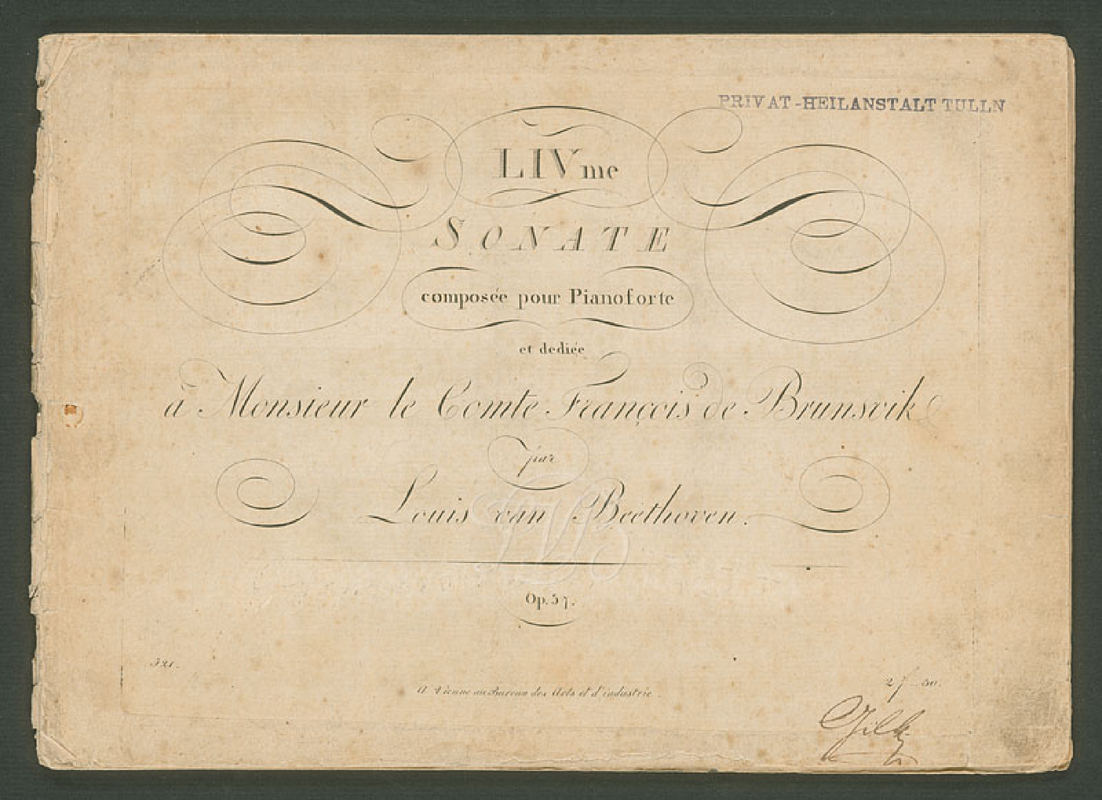 PRIVAT-HEILANSTALT TULLN
LIVme
SONATE
composée pour Pianoforte
et dediée
à Monsieur le Comte François de Brunsvik
par
Louis van Beethoven.
LVB
Op. 57.
521.
A Vienne au Bureau des Arts et d'industrie
2 f 30.